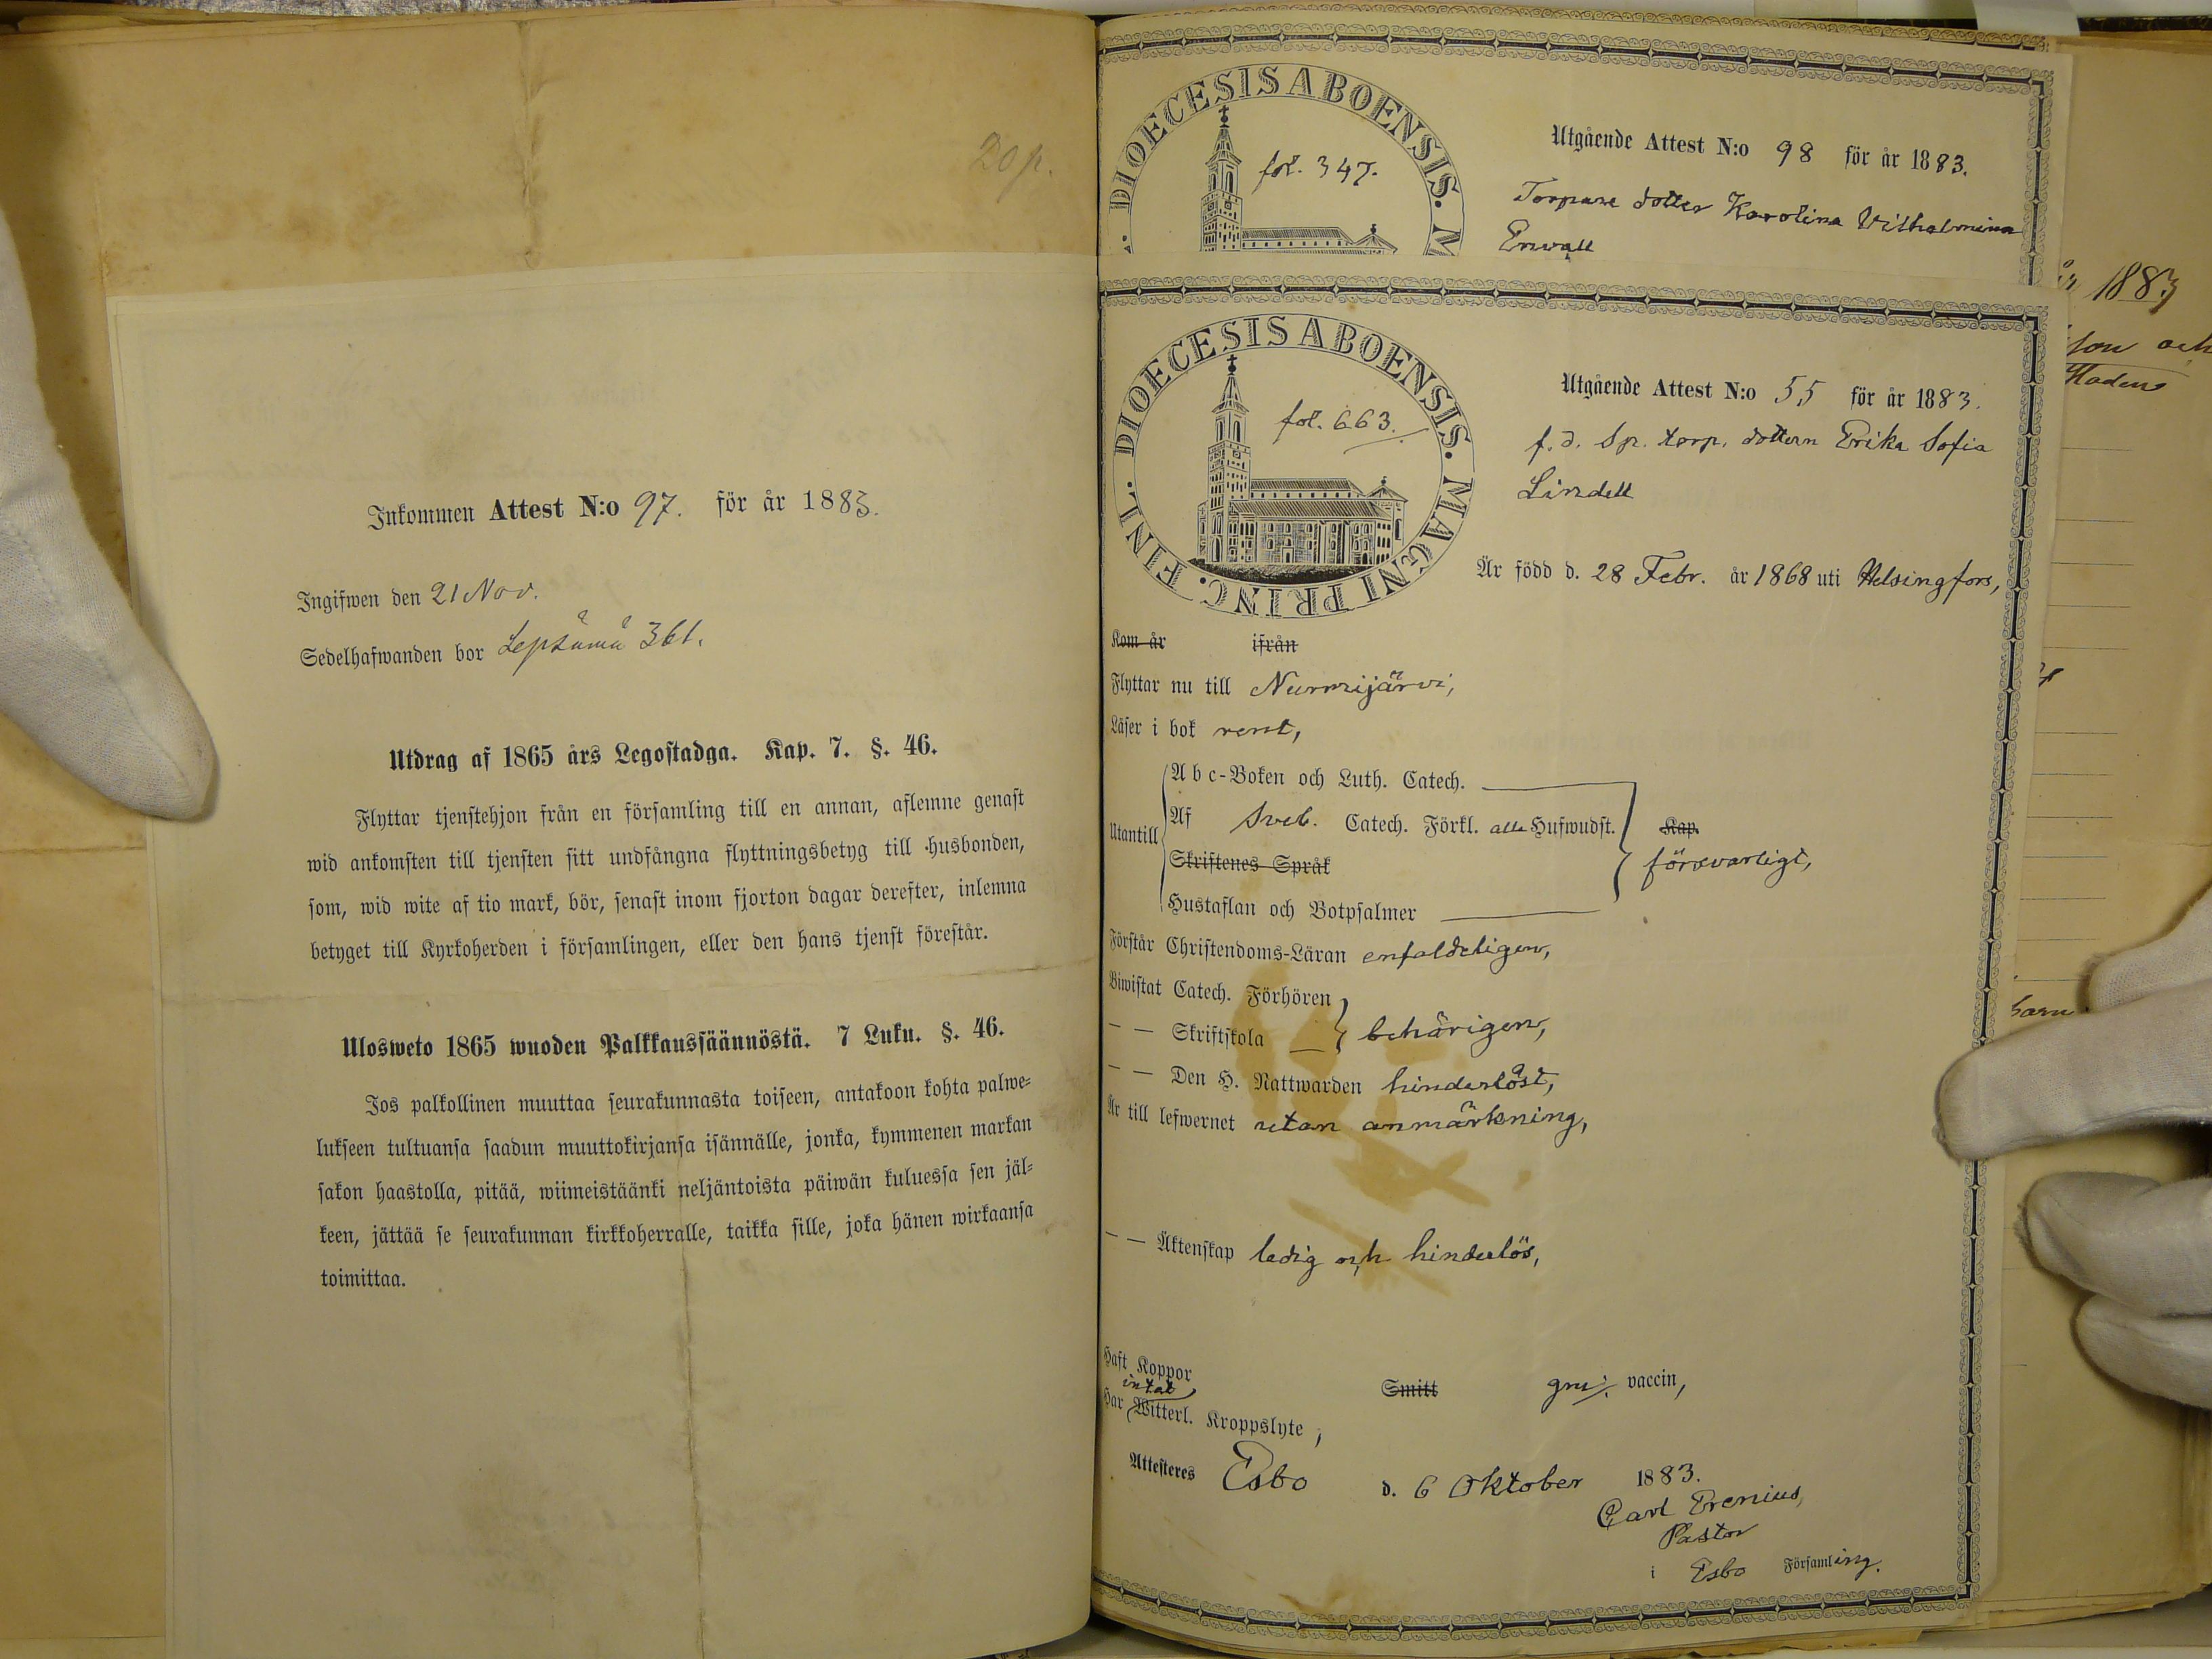 20 p.
Inkommen Attest N:o 97. för år 1883.
Ingifwen den 21 Nov.
Sedelhafwanden bor Lepsämä 361.
Utdrag af 1865 års Legostadga. Kap. 7. §. 46.
Flyttar tjenstehjon från en församling till en annan, aflemne genast
wid ankomsten till tjensten sitt undfångna flyttningsbetyg till husbonden,
som, wid wite af tio mark, bör, senast inom fjorton dagar derefter, inlemna
betyget till Kyrkoherden i församlingen, eller den hans tjenst förestår.
Ulosweto 1865 wuoden Palkkaussäännöstä. 7 Luku. §. 46.
Jos palkollinen muuttaa seurakunnasta toiseen, antakoon kohta palwe=
lukseen tultuansa saadun muuttokirjansa isännälle, jonka, kymmenen markan
sakon haastolla, pitää, wiimeistäänki neljäntoista päiwän kuluessa sen jäl=
keen, jättää se seurakunnan kirkkoherralle, taikka sille, joka hänen wirkaansa
toimittaa.
DIOECESIS ABOENSIS. M
fol. 347.
Utgående Attest N:o 98 för år 1883.
Torpare dotter Karolina Vilhelmina
Enwall
FINL. DIOECESIS ABOENSIS. MAGNI PRINC.
fol. 663.
Utgående Attest N:o 55 för år 1883.
f.d. Sp. torp. dottern Erika Sofia
Lindell
Är född d. 28 Febr. år 1868 uti Helsingfors,
Kom år ifrån
Flyttar nu till Nurmijärvi,
Läser i bok rent,
Utantill
Abc-Boken och Luth. Catech.
Af Sveb. Catech. Förkl. alla Hufwudst. Kap.
Skriftenes Språk försvarligt,
Hustaflan och Botpsalmer
Förstår Christendoms-Läran enfaldeligen,
Biwistat Catech. Förhören
— — Skriftskola behörigen,
— — Den H. Nattwarden hinderlöst,
Är till lefwernet utan anmärkning,
— — Äktenskap ledig och hinderlös,
Haft Koppor Smitt gm vaccin,
intet
Har Witterl. Kroppslyte,
Attesteres Esbo d. 6 Oktober 1883.
Carl Erenius,
Pastor
i Esbo Församling.
1883
son och
barn